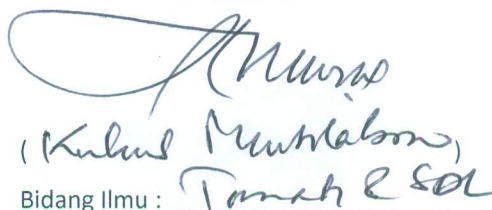 (Kukuh Murtilaksono)
Bidang Ilmu : Tanah & SDL